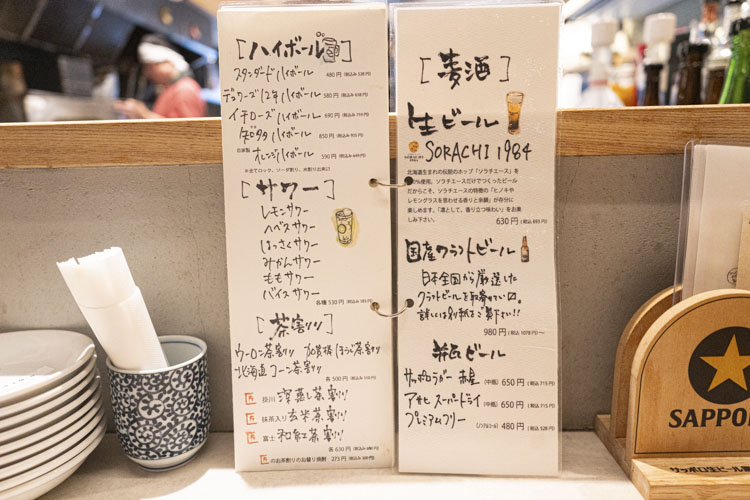 [ハイボール]
スタンダードハイボール 480円(税込み528円)
デュワーズ12年ハイボール 580円(税込み638円)
イチローズハイボール 690円(税込み759円)
知多ハイボール 850円(税込み935円)
自家製 オレンジハイボール 590円(税込み649円)
※全てロック、ソーダ割り、水割り出来ます
[サワー]
レモンサワー
ヘベスサワー
はっさくサワー
みかんサワー
ももサワー
バイスサワー
各種530円(税込み583円)
[茶割り]
ウーロン茶割り 加賀棒ほうじ茶割り
北海道コーン茶割り
各500円(税込み550円)
掛川 深蒸し茶割り
抹茶入り玄米茶割り
富士 和紅茶割り
各630円
のお茶割りのお替り焼酎 273円(税込み300円)
[麦酒]
生ビール
SORACHI 1984
北海道生まれの伝説のホップ「ソラチエース」を
%使用。ソラチエースだけでつくったビール
だからこそ、ソラチエースの特徴の「ヒノキや
レモングラスを思わせる香りと余韻」が存分に
楽しめます。「凛として、香り立つ味わい」をお楽
しみ下さい。
630円(税込693円)
国産クラフトビール
日本全国から厳選した
クラフトビールを取寄せてい〼。
詳しくは別紙をご覧下さい!!
980円(税込1078円)〜
瓶ビール
サッポロラガー 赤星 (中瓶) 650円(税込715円)
アサヒ スーパードライ (中瓶) 650円(税込715円)
プレミアムフリー (ノンアルコール) 480円(税込528円)
SAPPO
サッポロ生ビール